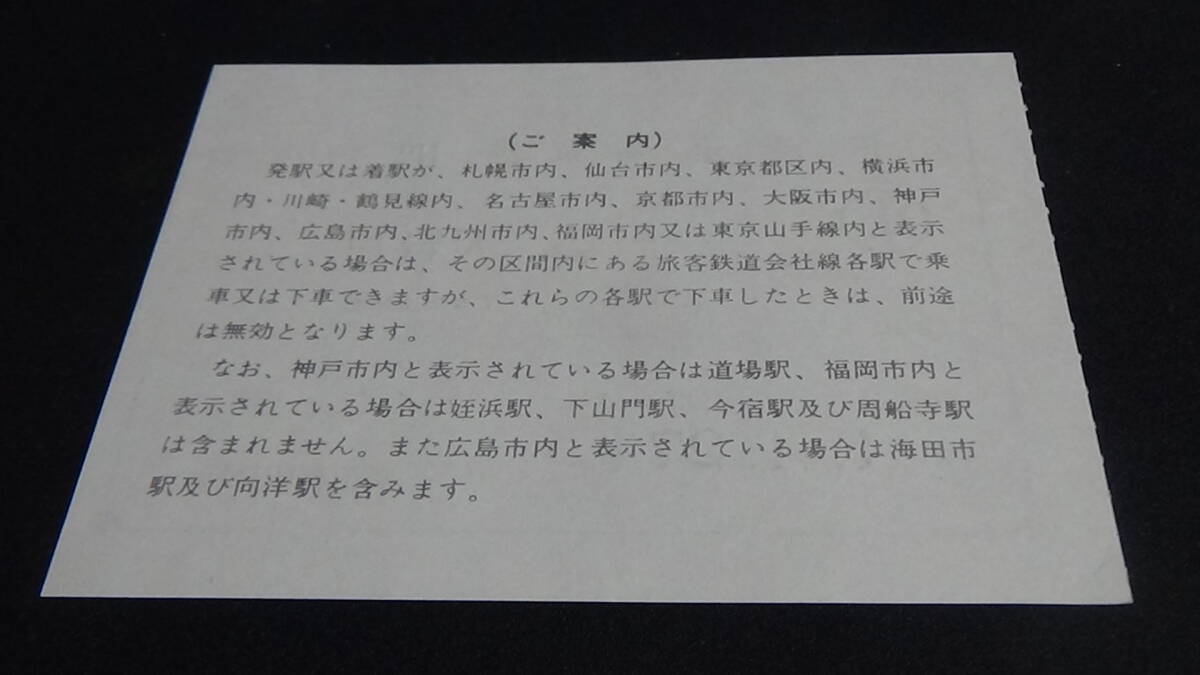 (ご案内)
発駅又は着駅が、札幌市内、仙台市内、東京都区内、横浜市
内・川崎・鶴見線内、名古屋市内、京都市内、大阪市内、神戸
市内、広島市内、北九州市内、福岡市内又は東京山手線内と表示
されている場合は、その区間内にある旅客鉄道会社線各駅で乗
車又は下車できますが、これらの各駅で下車したときは、前途
は無効となります。
なお、神戸市内と表示されている場合は道場駅、福岡市内と
表示されている場合は姪浜駅、下山門駅、今宿駅及び周船寺駅
は含まれません。また広島市内と表示されている場合は海田市
駅及び向洋駅を含みます。